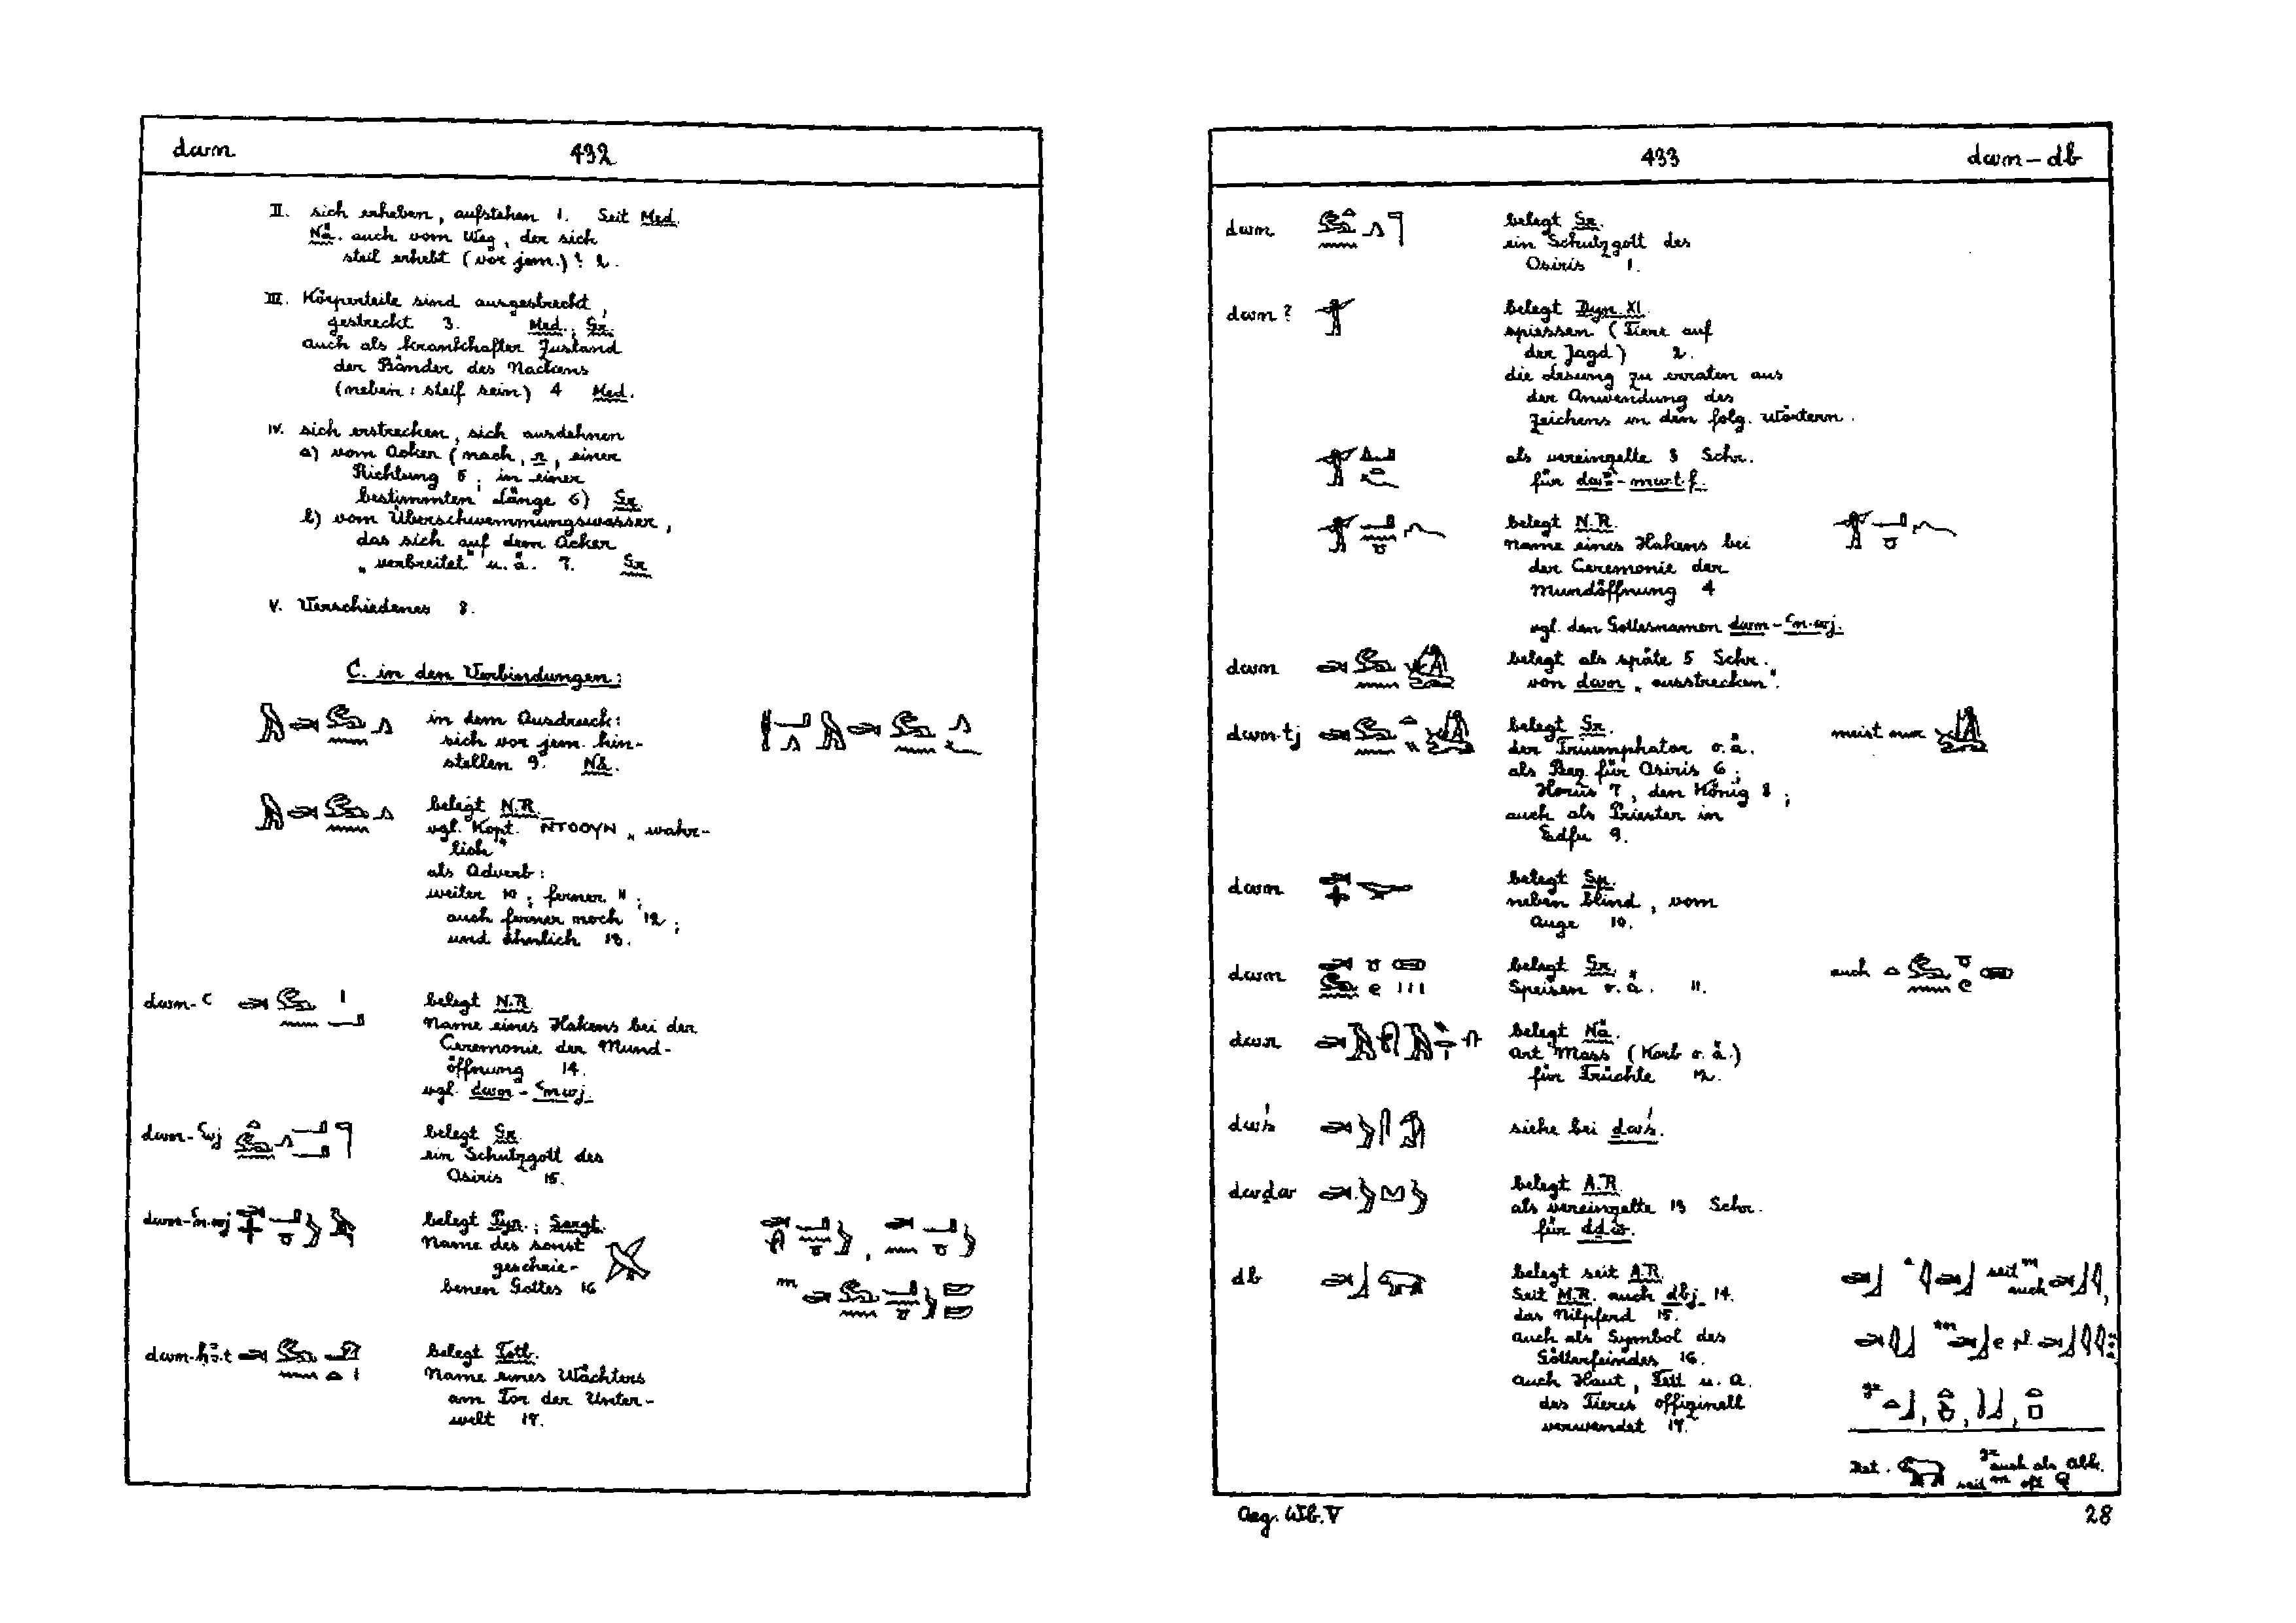 dwn 432
II. sich erheben, aufstehen 1. Seit Med.
Nä. auch vom Weg, der sich
steil erhebt (vor jem.)? 2.
III. Körperteile sind ausgestreckt,
gestreckt 3. Med.; Gr.
auch als krankhafter Zustand
der Bänder des Nackens
(neben: steif sein) 4 Med.
IV. sich erstrecken, sich ausdehnen
a) vom Acker (nach, r, einer
Richtung 5; in einer
bestimmten Länge 6) Gr.
b) vom Überschwemmungswasser,
das sich auf dem Acker
„verbreitet" u. ä. 7. Gr.
V. Verschiedenes 8.
C. in den Verbindungen:
in dem Ausdruck:
sich vor jem. hin-
stellen 9. Nä.
belegt N.R.
vgl. Kopt. N̄TOOYN „wahr-
lich"
als Adverb:
weiter 10; ferner 11;
auch ferner noch 12;
und ähnlich 13.
dwn-ꜥ belegt N.R.
Name eines Hakens bei der
Ceremonie der Mund-
öffnung 14.
vgl. dwn-ꜥnwj.
dwn-ꜥwj belegt Gr.
ein Schutzgott des
Osiris 15.
dwn-ꜥn.wj belegt Pyr.; Sargt.
Name des sonst
geschrie-
benen Gottes 16
dwn-ḥꜣ.t belegt Totb.
Name eines Wächters
am Tor der Unter-
welt 17.
433 dwn – db
dwn belegt Gr.
ein Schutzgott des
Osiris 1.
dwn? belegt Dyn. XI.
spiessen (Tiere auf
der Jagd) 2.
die Lesung zu erraten aus
der Anwendung des
Zeichens in den folg. Wörtern.
als vereinzelte 3 Schr.
für dwꜣ-mwt.f.
belegt N.R.
Name eines Hakens bei
der Ceremonie der
Mundöffnung 4
vgl. den Gottesnamen dwn-ꜥn.wj.
dwn belegt als späte 5 Schr.
von dwn „ausstrecken".
dwn.tj belegt Gr. meist nur
der Triumphator o. ä.
als Bez. für Osiris 6;
Horus 7, den König 8;
auch als Priester in
Edfu 9.
dwn belegt Sp.
neben blind, vom
Auge 10.
dwn belegt Gr. auch
Speisen o. ä. 11.
dwr belegt Nä.
Art Mass (Korb o. ä.)
für Früchte 12.
dwś siehe bei dwś.
dwḏw belegt A.R.
als vereinzelte 13 Schr.
für
db belegt seit A.R. seit m auch
Seit M.R. auch dbj 14.
das Nilpferd 15.
auch als Symbol des
Götterfeindes 16.
auch Haut, Fett u. a.
des Tieres offizinell
verwendet 17.
Det. gr auch als Abk.
seit m oft
Aeg. Wb. V 28